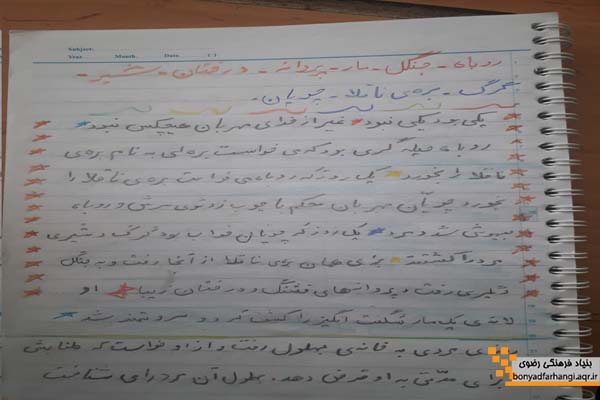 Subject:
Year. Month. Date. ( )
روباه - جنگل - مار - پروانه - درختان - شیر -
گرگ - بره‌ی ناقلا - چوپان.
یکی بود یکی نبود غیر از خدای مهربان هیچکس نبود
روباه حیله گری بود که می خواست بره‌ای به نام بره‌ی
ناقلا را بخورد یک روز که روباه می خواست بره‌ی ناقلا را
بخورد چوپان مهربان محکم با چوب زد توی سرش و روباه
بیهوش شد و مرد یک روز که چوپان خواب بود گرگ و شیری
مرد را کشتند برای همان بره‌ی ناقلا از آنجا رفت و به جنگل
دیگری رفت و پروانه‌های قشنگ و درختان زیبا او
لانه‌ی یک مار شگفت انگیز را کشف کرد و ثروتمند شد
مردی به خانه‌ی بهلول رفت و از او خواست که
برای مدتی به او قرض دهد. بهلول آن مرد را می شناخت
بنیاد فرهنگی رضوی
bonyadfarhangi.aqr.ir